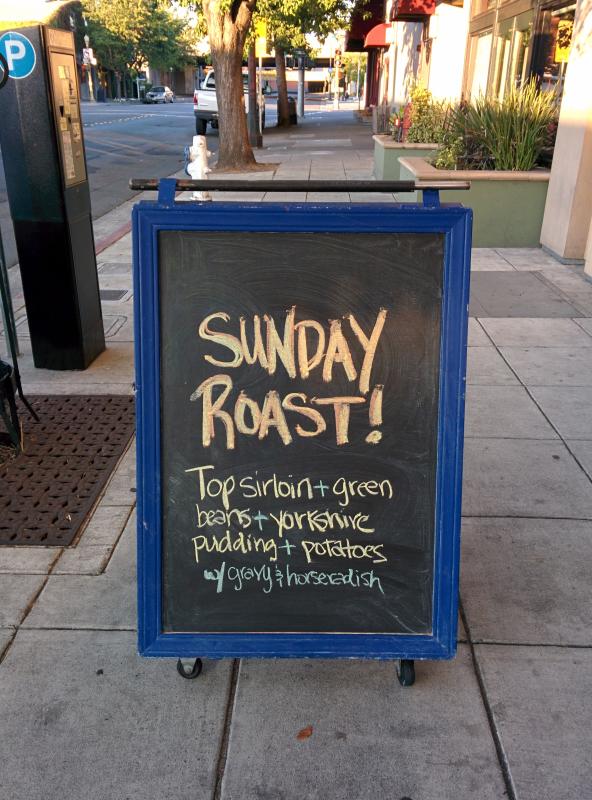 P
SUNDAY
ROAST!
Top sirloin + green
beans + yorkshire
pudding + potatoes
w/ gravy & horseradish